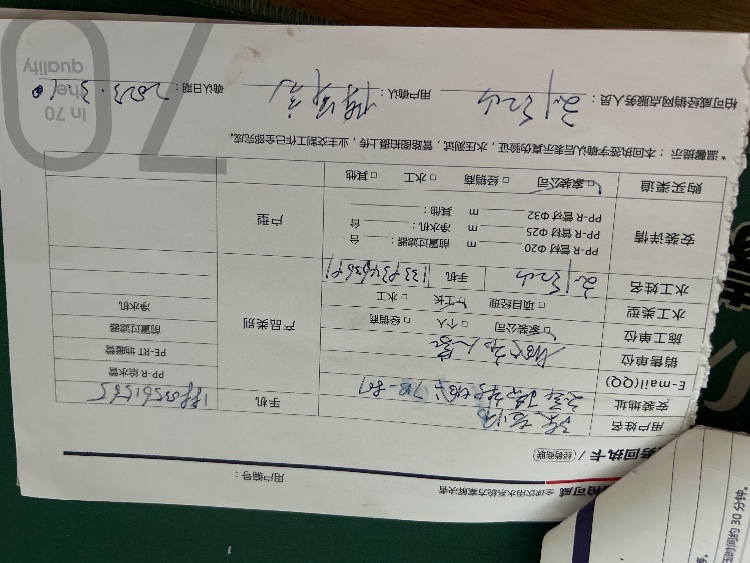 柏可威 全球饮用水系统方案解决者
用户编号：
务回执卡 / 经销商联
用户姓名
手机 18805561565
安装地址
E-mail(QQ)
销售单位
施工单位 家装公司 个人 经销商
水工类型 项目经理 工长 水工
水工姓名 手机
产品类别
PP-R 给水管
PE-RT 地暖管
前置过滤器
净水机
安装详情
PP-R 管材 Φ20 m 前置过滤器： 台
PP-R 管材 Φ25 m 净水机： 台
PP-R 管材 Φ32 m 其他：
户型
购买渠道 家装公司 经销商 水工 其他
* 温馨提示：本回执签字确认后表示真伪验证，水压测试，管路图拍摄上传，业主交割工作已全部完成。
柏可威经销网点服务人员：
用户确认：
确认日期：2023.3.10
70
In 70
the
quality
压时间约 30 分钟。